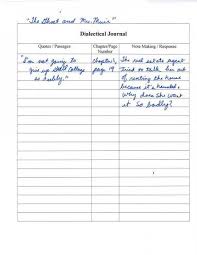 "The Ghost and Mrs. Muir"
Dialectical Journal
Quotes / Passages
Chapter/Page Number
Note Making / Response
"I'm not going to
give up Gull Cottage
so easily."
Chapter 1,
page 19
The real estate agent
tried to talk her out
of renting the house
because it is haunted.
Why does she want
it so badly?